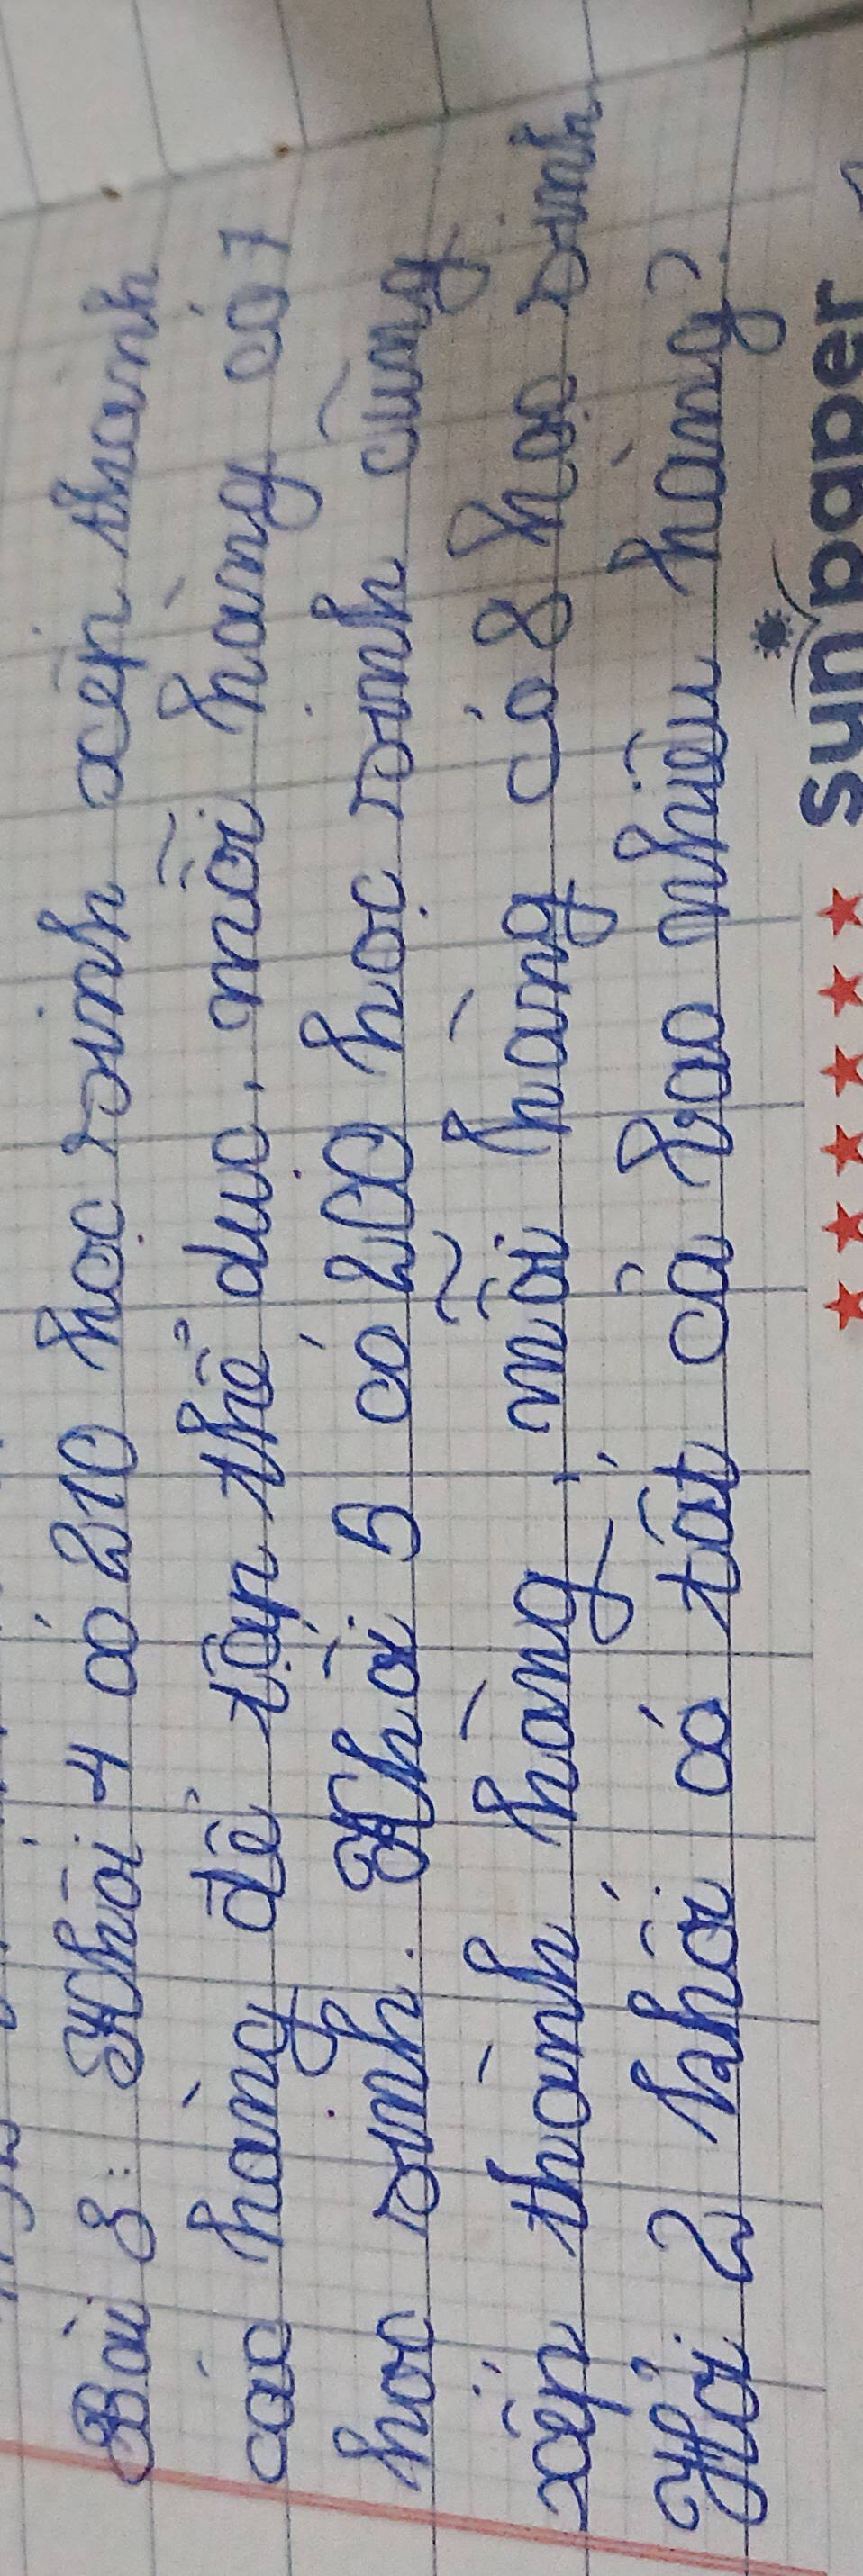 Bài 8: Khối 4 có 210 học sinh xếp thành
các hàng để tập thể dục, mỗi hàng có 7
học sinh. Khối 5 có 200 học sinh cũng
xếp thành hàng, mỗi hàng có 8 học sinh
Hỏi 2 khối có tất cả bao nhiêu hàng?
sunpaper